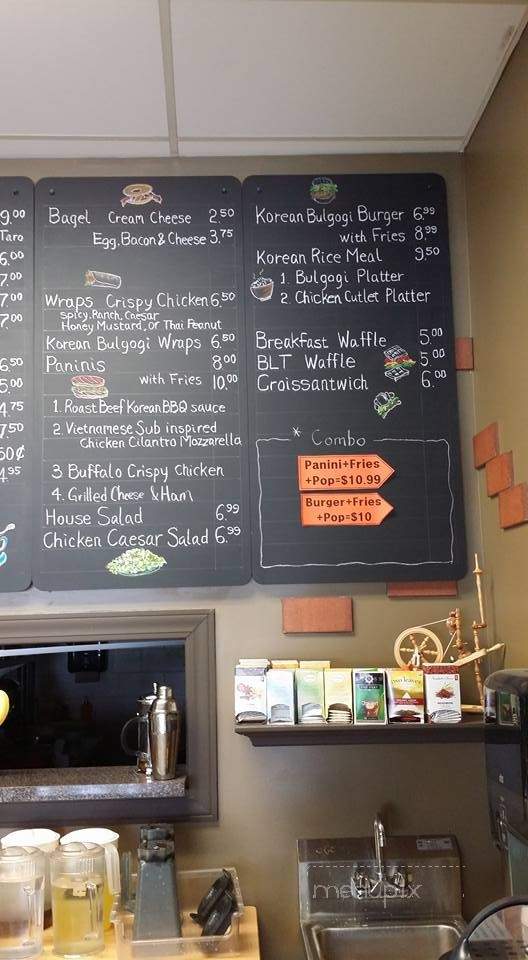 9.00
Taro
6.00
7.00
7.00
7.00
6.50
5.00
4.75
7.50
50¢
4.95
Bagel Cream Cheese 2.50
Egg, Bacon & Cheese 3.75
Wraps Crispy Chicken 6.50
Spicy, Ranch, Caesar
Honey Mustard, or Thai Peanut
Korean Bulgogi Wraps 6.50
Paninis 8.00
with Fries 10.00
1. Roast Beef Korean BBQ sauce
2. Vietnamese Sub inspired
Chicken Cilantro Mozzarella
3 Buffalo Crispy Chicken
4. Grilled Cheese & Ham
House Salad 6.99
Chicken Caesar Salad 6.99
Korean Bulgogi Burger 6.99
with Fries 8.99
Korean Rice Meal 9.50
1. Bulgogi Platter
2. Chicken Cutlet Platter
Breakfast Waffle 5.00
BLT Waffle 5.00
Croissantwich 6.00
* Combo
Panini+Fries
+Pop=$10.99
Burger+Fries
+Pop=$10
two leaves
menupix